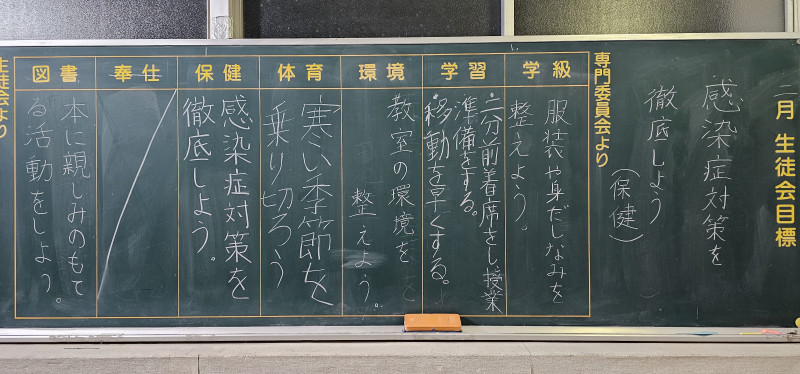 二月 生徒会目標
感染症対策を
徹底しよう
（保健）
専門委員会より
学級
服装や身だしなみを
整えよう。
学習
・二分前着席をし、授業
準備をする。
・移動を早くする。
環境
教室の環境を
整えよう。
体育
寒い季節を
乗り切ろう
保健
感染症対策を
徹底しよう。
奉仕
図書
本に親しみのもて
る活動をしよう。
生徒会より